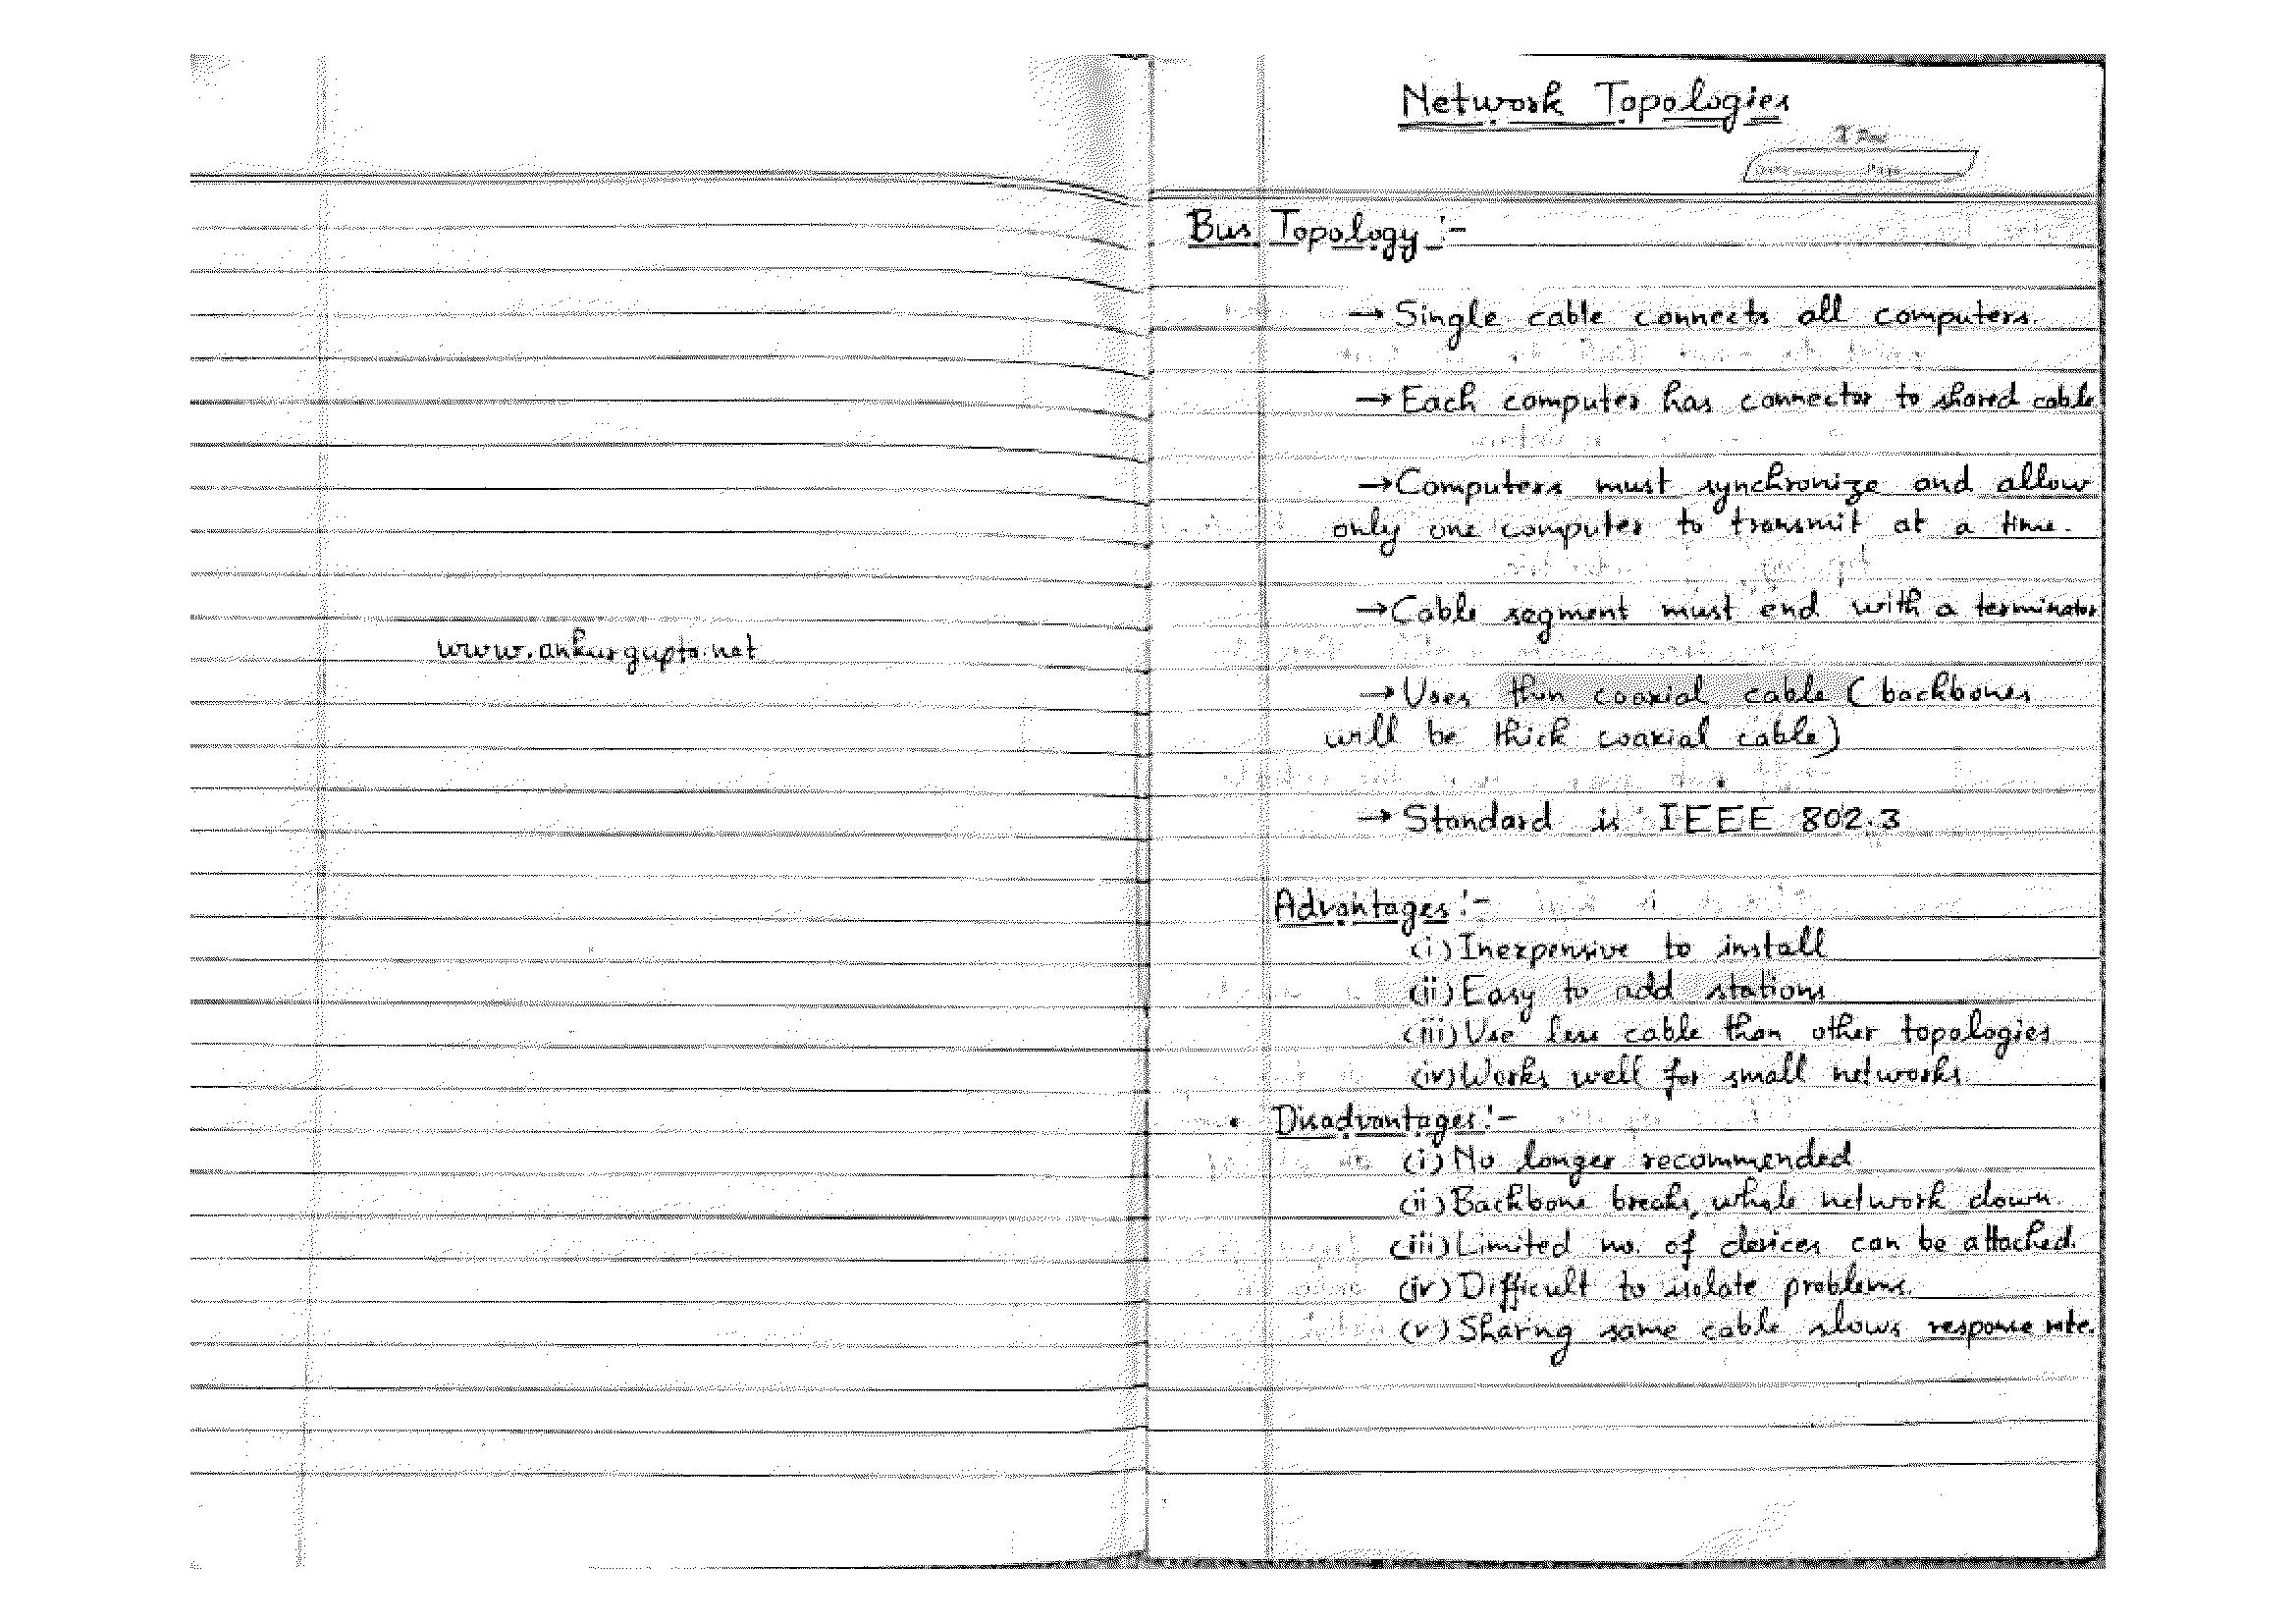 www.ankurgupta.net
Network Topologies
Bus Topology :-
→ Single cable connects all computers.
→ Each computer has connector to shared cable
→ Computers must synchronize and allow
only one computer to transmit at a time.
→ Cable segment must end with a terminator
→ Uses thin coaxial cable (backbones
will be thick coaxial cable)
→ Standard is IEEE 802.3
Advantages :-
(i) Inexpensive to install
(ii) Easy to add stations
(iii) Use less cable than other topologies
(iv) Works well for small networks
• Disadvantages :-
(i) No longer recommended
(ii) Backbone breaks, whole network down.
(iii) Limited no. of devices can be attached.
(iv) Difficult to isolate problems.
(v) Sharing same cable slows response rate.